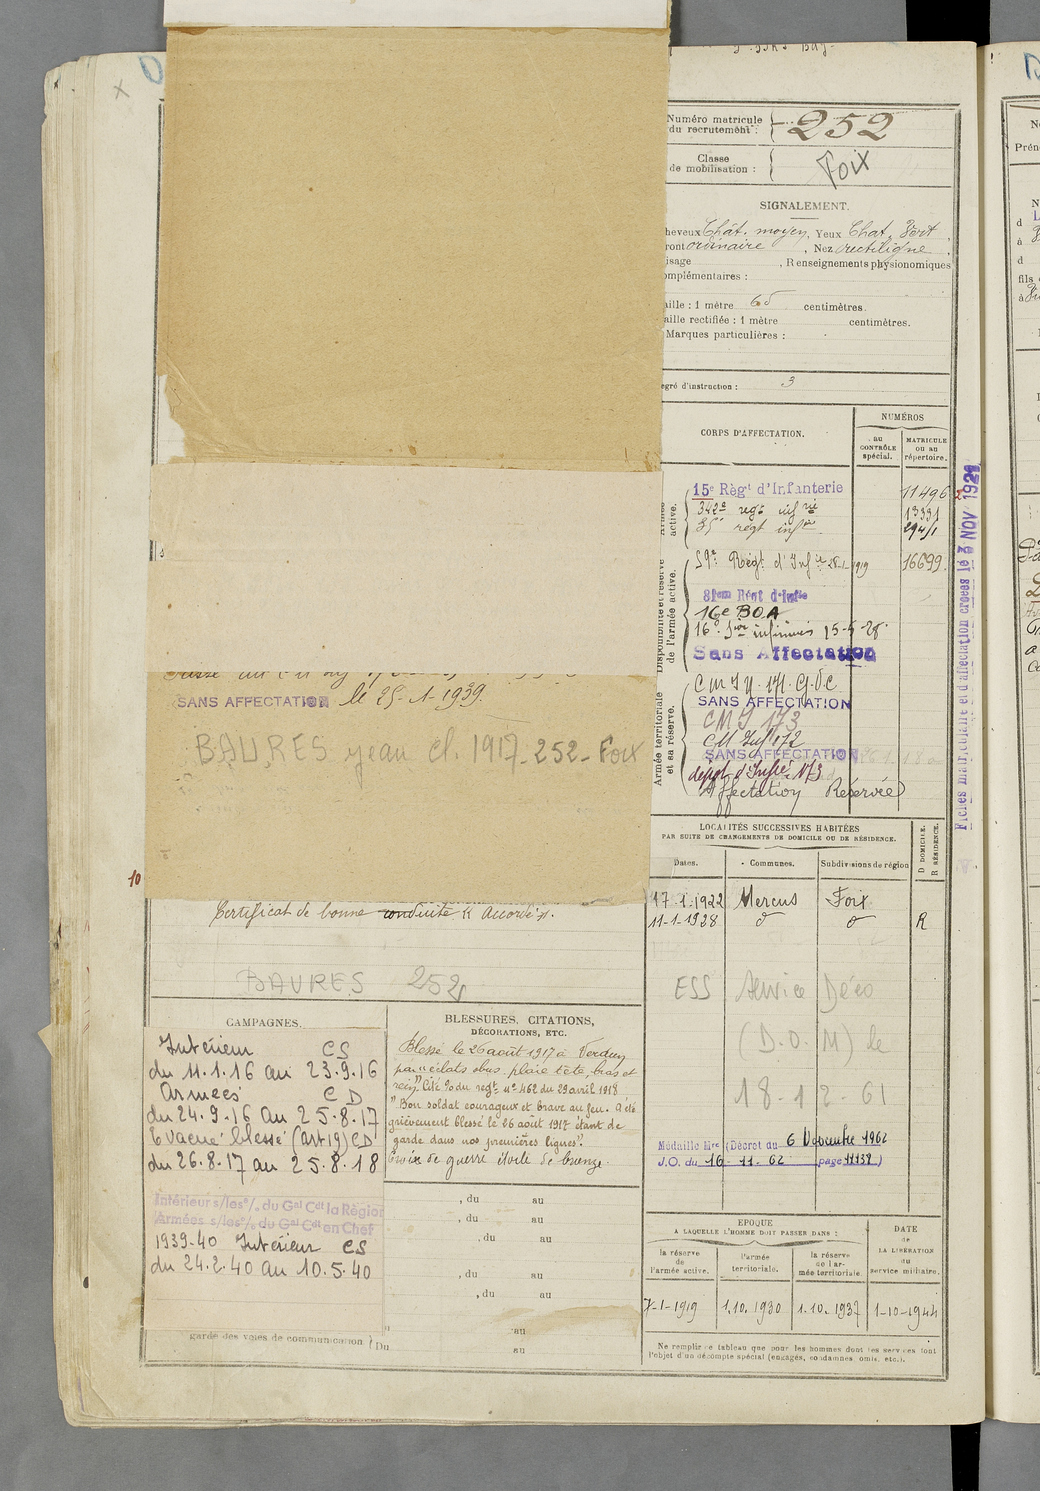 Numéro matricule
du recrutement :
252
Classe
de mobilisation :
Foix
SIGNALEMENT.
heveux Chât. moyen, Yeux Chat. Vert,
ront ordinaire, Nez rectiligne,
isage , Renseignements physionomiques
omplémentaires :
aille : 1 mètre 65 centimètres.
aille rectifiée : 1 mètre centimètres.
Marques particulières :
egré d'instruction : 3
CORPS D'AFFECTATION.
NUMÉROS
au
CONTRÔLE
spécial.
MATRICULE
ou au
répertoire.
active.
15e Règt d'Infanterie 11496
342e regt infrie 13331
regt infie
Disponibilité et réserve
de l'armée active.
59e Régt d'Infie 28-1-1919 16699
81em Regt d'Infie
16e BOA
16e infirmiers 15-5-28
Sans Affectation
Armée territoriale
et sa réserve.
SANS AFFECTATION
CMI 173
CM Inf 172
SANS AFFECTATION
dépôt d'Infie 173
Affectation Réservée
Fiches matriculaire et d'affectation créées le 3 NOV 1921
le 25-1-1939.
SANS AFFECTATION
BAURES Jean cl. 1917-252-Foix
10
Certificat de bonne conduite "Accordé".
BAURES 252
LOCALITÉS SUCCESSIVES HABITÉES
PAR SUITE DE CHANGEMENTS DE DOMICILE OU DE RÉSIDENCE.
Dates. Communes. Subdivisions de région
D DOMICILE.
R RÉSIDENCE.
17-1-1922 Mercus Foix
11-1-1928 d° d° R
ESS Service Déco
(D.O.M) le
18-12-61
Médaille Mre (Décret du 6 Novembre 1962
J.O. du 16-11-62 page 11138)
CAMPAGNES.
Intérieur CS
du 11.1.16 au 23.9.16
Armées CD
du 24.9.16 au 25.8.17
Evacué blessé (art 19) CD
du 26.8.17 au 25.8.18
Intérieur s/les o/. du Gal Cdt la Région
Armées s/les o/. du Gal Cdt en Chef
1939-40 Intérieur CS
du 24.2.40 au 10.5.40
garde des voies de communication. Du
BLESSURES, CITATIONS,
DÉCORATIONS, ETC.
Blessé le 26 août 1917 à Verdun
par éclats obus. plaie tête, bras et
rein. Cité %du regt n° 462 du 29 avril 1918
"Bon soldat courageux et brave au feu. A été
grièvement blessé le 26 août 1917 étant de
garde dans nos premières lignes".
Croix de guerre étoile de bronze.
, du au
, du au
, du au
, du au
, du au
au
au
EPOQUE
A LAQUELLE L'HOMME DOIT PASSER DANS :
DATE
de
LA LIBÉRATION
du
service militaire.
la réserve
de
l'armée active.
l'armée
territoriale.
la réserve
de l'ar-
mée territoriale.
7-1-1919 1.10.1930 1.10.1937 1-10-1944
Ne remplir ce tableau que pour les hommes dont les services font
l'objet d'un décompte spécial (engagés, condamnés, omis, etc.).